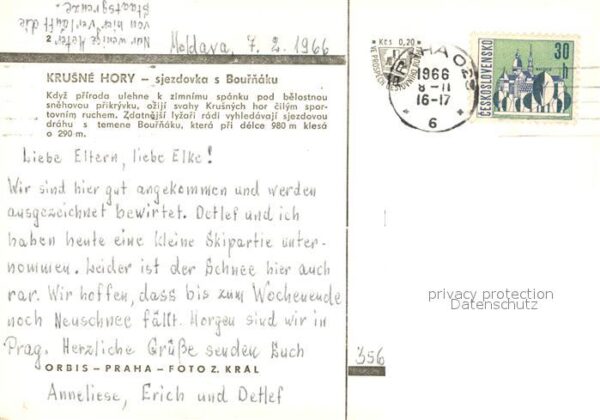 Nur wenige Meter
von hier verläuft die
Staatsgrenze.
2
Moldava, 7. 2. 1966
KRUŠNÉ HORY – sjezdovka s Bouřňáku
Když příroda ulehne k zimnímu spánku pod bělostnou
sněhovou přikrývku, ožijí svahy Krušných hor čilým spor-
tovním ruchem. Zdatnější lyžaři rádi vyhledávají sjezdovou
dráhu s temene Bouřňáku, která při délce 980 m klesá
o 290 m.
Liebe Eltern, liebe Elke!
Wir sind hier gut angekommen und werden
ausgezeichnet bewirtet. Detlef und ich
haben heute eine kleine Skipartie unter-
nommen. Leider ist der Schnee hier auch
rar. Wir hoffen, dass bis zum Wochenende
noch Neuschnee fällt. Morgen sind wir in
Prag. Herzliche Grüße senden Euch
ORBIS – PRAHA – FOTO Z. KRÁL
Anneliese, Erich und Detlef
Kčs 0,20
PRAHA 02
1966
8-II
16-17
6
ČESKOSLOVENSKO
30
h
privacy protection
Datenschutz
356